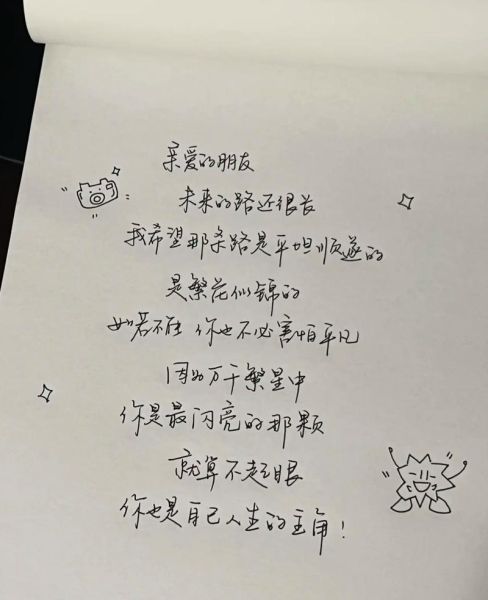 亲爱的朋友
未来的路还很长
我希望那条路是平坦顺遂的
是繁花似锦的
如若不在 你也不必害怕平凡
因为万千繁星中
你是最闪亮的那颗
就算不起眼
你也是自己人生的主角！